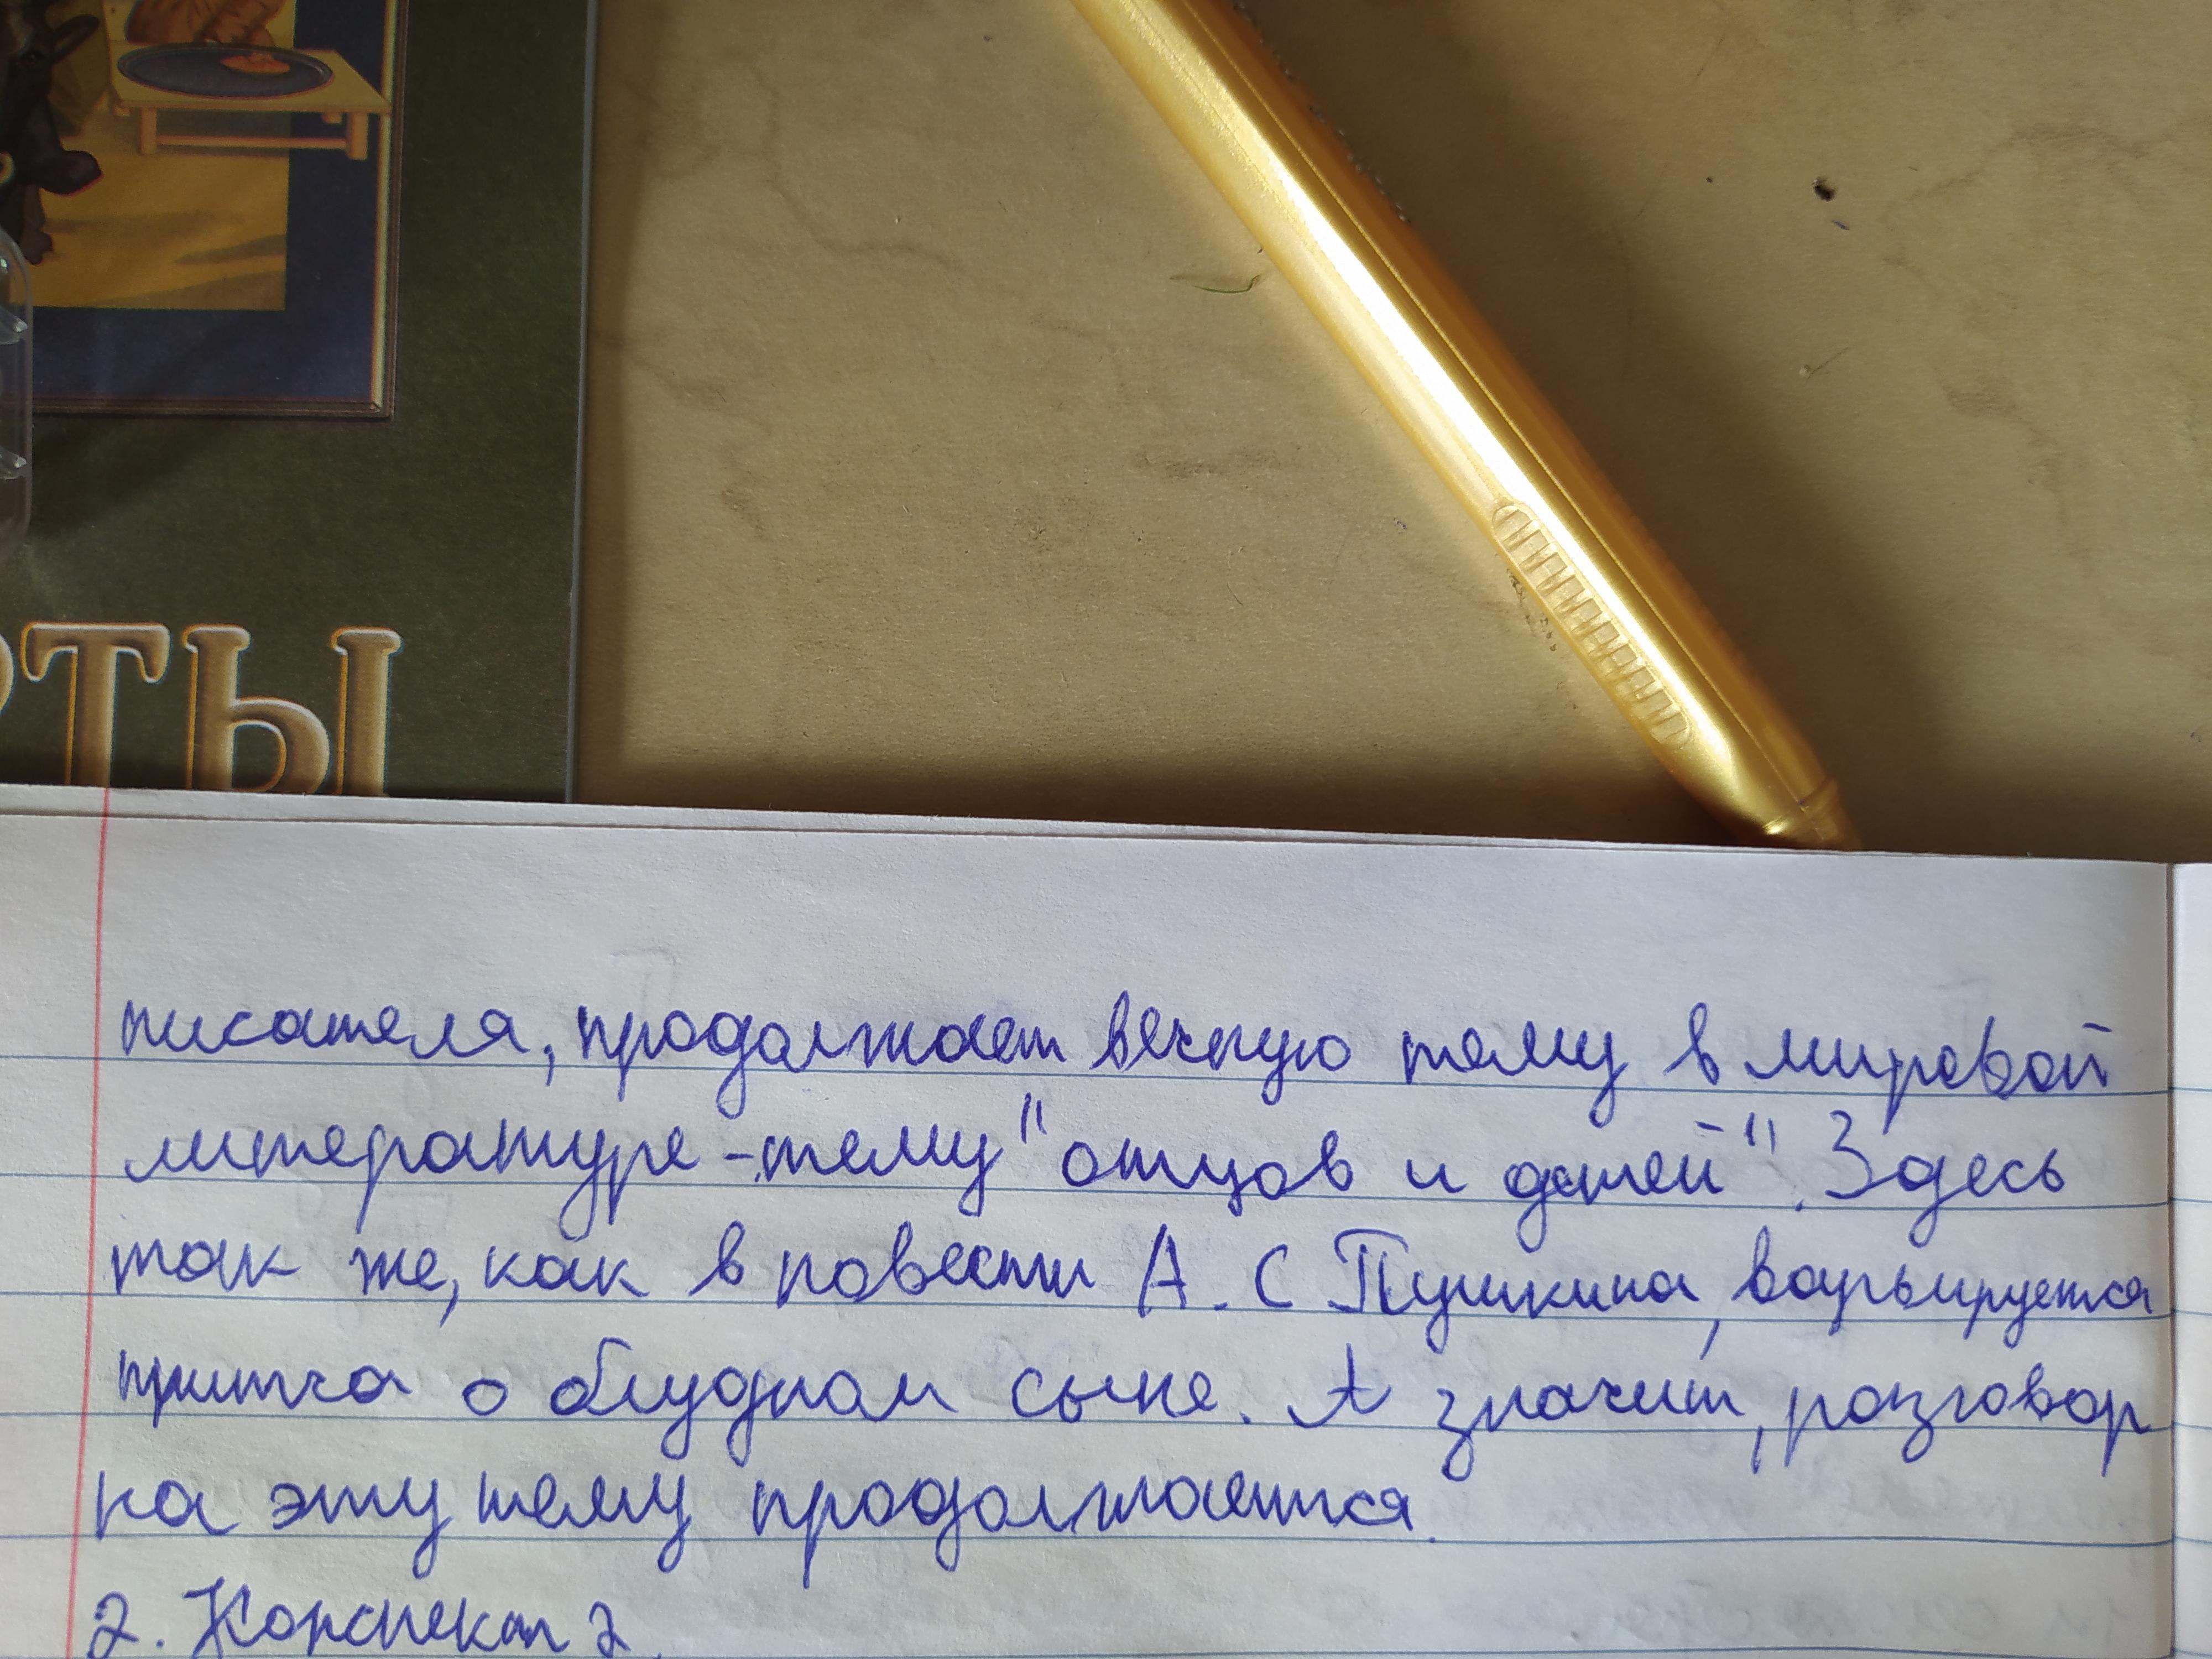 РТЫ
писателя, продолжает вечную тему в мировой
литературе - тему "отцов и детей". Здесь
так же, как в повести А. С Пушкина, варьируется
притча о блудном сыне. А значит, разговор
на эту тему продолжается.
2. Конспект 2.